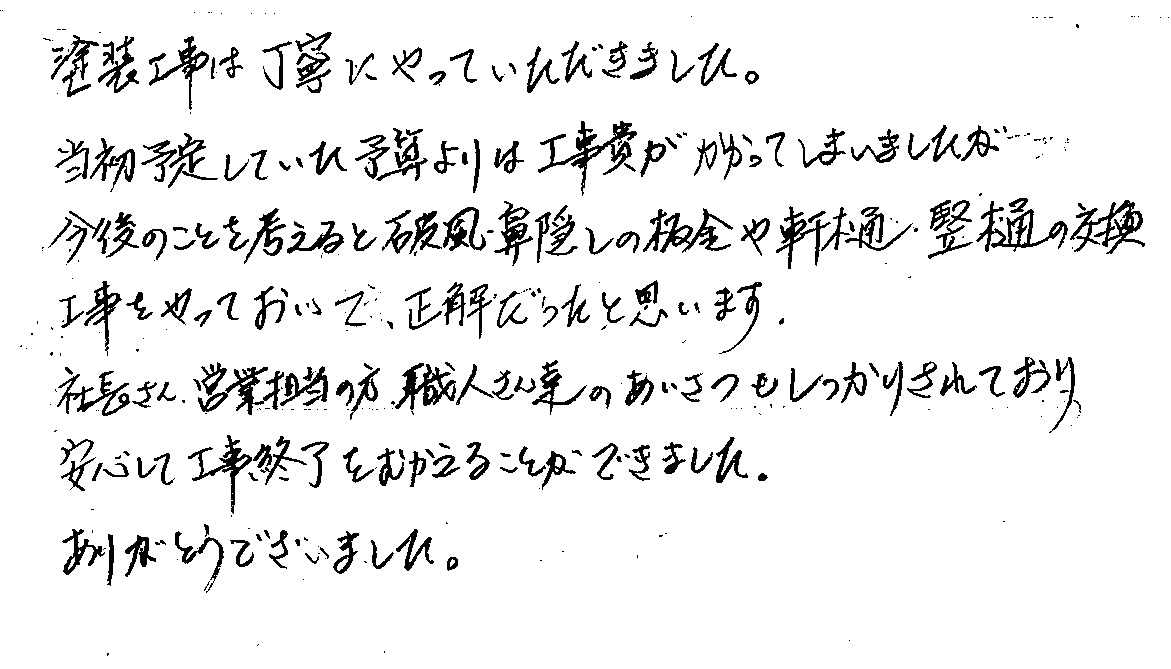 塗装工事は丁寧にやっていただきました。
当初予定していた予算よりは工事費がかかってしまいましたが
今後のことを考えると破風・鼻隠しの板金や軒樋・竪樋の交換
工事をやっておいて、正解だったと思います。
社長さん、営業担当の方、職人さん達のあいさつもしっかりされており
安心して工事終了をむかえることができました。
ありがとうございました。